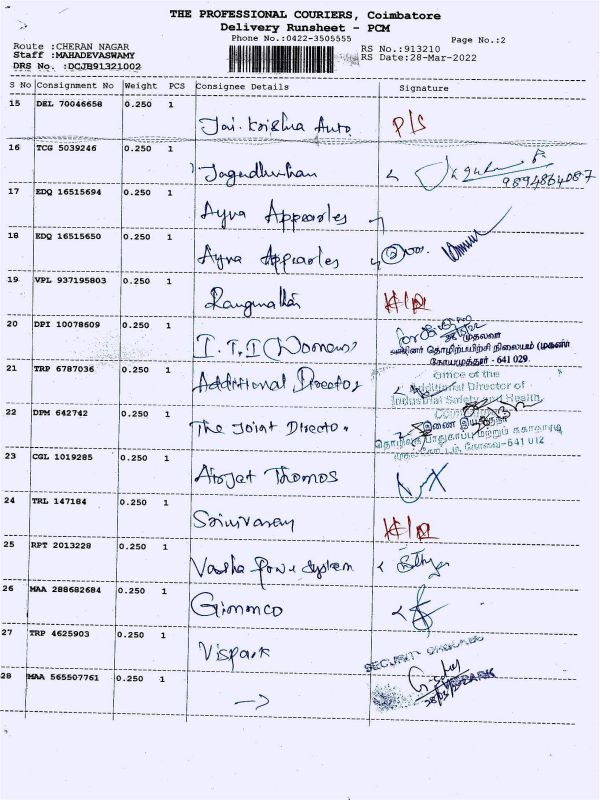 THE PROFESSIONAL COURIERS, Coimbatore
Delivery Runsheet - PCM
Phone No.:0422-3505555
Page No.:2
Route :CHERAN NAGAR
Staff :MAHADEVASWAMY
DRS No. :DCJB91321002
RS No.:913210
RS Date:28-Mar-2022
S No Consignment No Weight PCS Consignee Details Signature
15 DEL 70046658 0.250 1
Jai. Krishna Auto P/S
16 TCG 5039246 0.250 1
Jagadhunhan
9894864087
17 EDQ 16515694 0.250 1
Ayna Appearles
18 EDQ 16515650 0.250 1
Ayna Appearles
19 VPL 937195803 0.250 1
20 DPI 10078609 0.250 1
முதல்வர்
I.T.I (Womens) தொழிற்பயிற்சி நிலையம் (மகளிர்)
கோயமுத்தூர் - 641 029.
21 TRP 6787036 0.250 1
Office of the
Additional Director Additional Director of
Industrial Safety and Health
22 DPM 642742 0.250 1
The Joint Director இணை இயக்குநர்
பாதுகாப்பு மற்றும் சுகாதாரம்
கோவை-641 012
23 CGL 1019285 0.250 1
Thomas
24 TRL 147184 0.250 1
Srinivasan
25 RPT 2013228 0.250 1
Varsha Power System
26 MAA 288682684 0.250 1
Gimmco
27 TRP 4625903 0.250 1
Vispark
SECURITY CHECKED
28 MAA 565507761 0.250 1